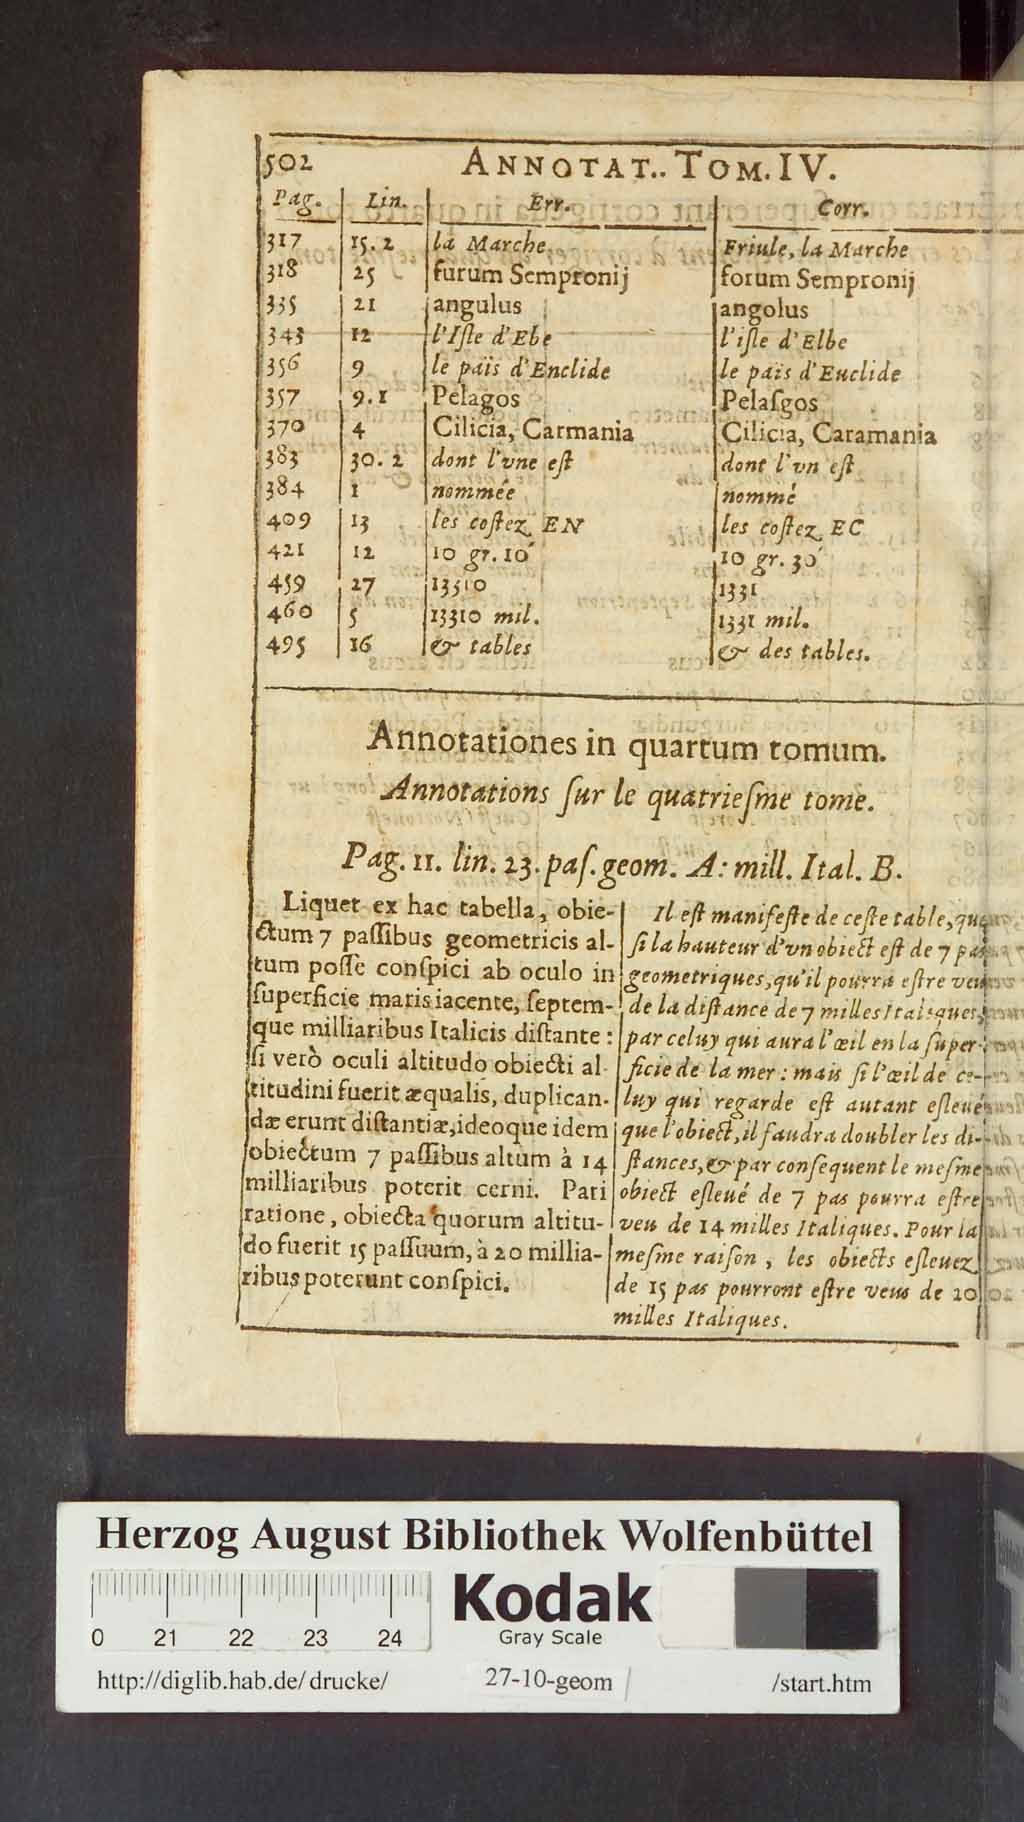 502 ANNOTAT.. TOM. IV.
Pag. Lin. Err. Corr.
317 15. 2 la Marche Friule, la Marche
318 25 furum Sempronij forum Sempronij
335 21 angulus angolus
343 12 l'Iſle d'Ebe l'iſle d'Elbe
356 9 le païs d'Enclide le païs d'Euclide
357 9. 1 Pelagos Pelaſgos
370 4 Cilicia, Carmania Cilicia, Caramania
383 30. 2 dont l'vne eſt dont l'vn eſt
384 1 nommée nommé
409 13 les coſtez EN les coſtez EC
421 12 10 gr. 10´ 10 gr. 30´
459 27 13310 1331
460 5 13310 mil. 1331 mil.
495 16 & tables & des tables.
Annotationes in quartum tomum.
Annotations ſur le quatrieſme tome.
Pag. 11. lin. 23. paſ. geom. A: mill. Ital. B.
Liquet ex hac tabella, obie-
ctum 7 paſſibus geometricis al-
tum poſſe conſpici ab oculo in
ſuperficie maris iacente, ſeptem-
que milliaribus Italicis diſtante:
ſi verò oculi altitudo obiecti al-
titudini fuerit æqualis, duplican-
dæ erunt diſtantiæ, ideoque idem
obiectum 7 paſſibus altum à 14
milliaribus poterit cerni. Pari
ratione, obiecta quorum altitu-
do fuerit 15 paſſuum, à 20 millia-
ribus poterunt conſpici.
Il eſt manifeſte de ceſte table, que
ſi la hauteur d'vn obiect eſt de 7 pas
geometriques, qu'il pourra eſtre veu
de la diſtance de 7 milles Italiques,
par celuy qui aura l'œil en la ſuper-
ficie de la mer: mais ſi l'œil de ce-
luy qui regarde eſt autant eſleué
que l'obiect, il faudra doubler les di-
ſtances, & par conſequent le meſme
obiect eſleué de 7 pas pourra eſtre
veu de 14 milles Italiques. Pour la
meſme raiſon, les obiects eſleuez
de 15 pas pourront eſtre veus de 20
milles Italiques.
Herzog August Bibliothek Wolfenbüttel
0 21 22 23 24
Kodak
Gray Scale
http://diglib.hab.de/drucke/ 27-10-geom /start.htm